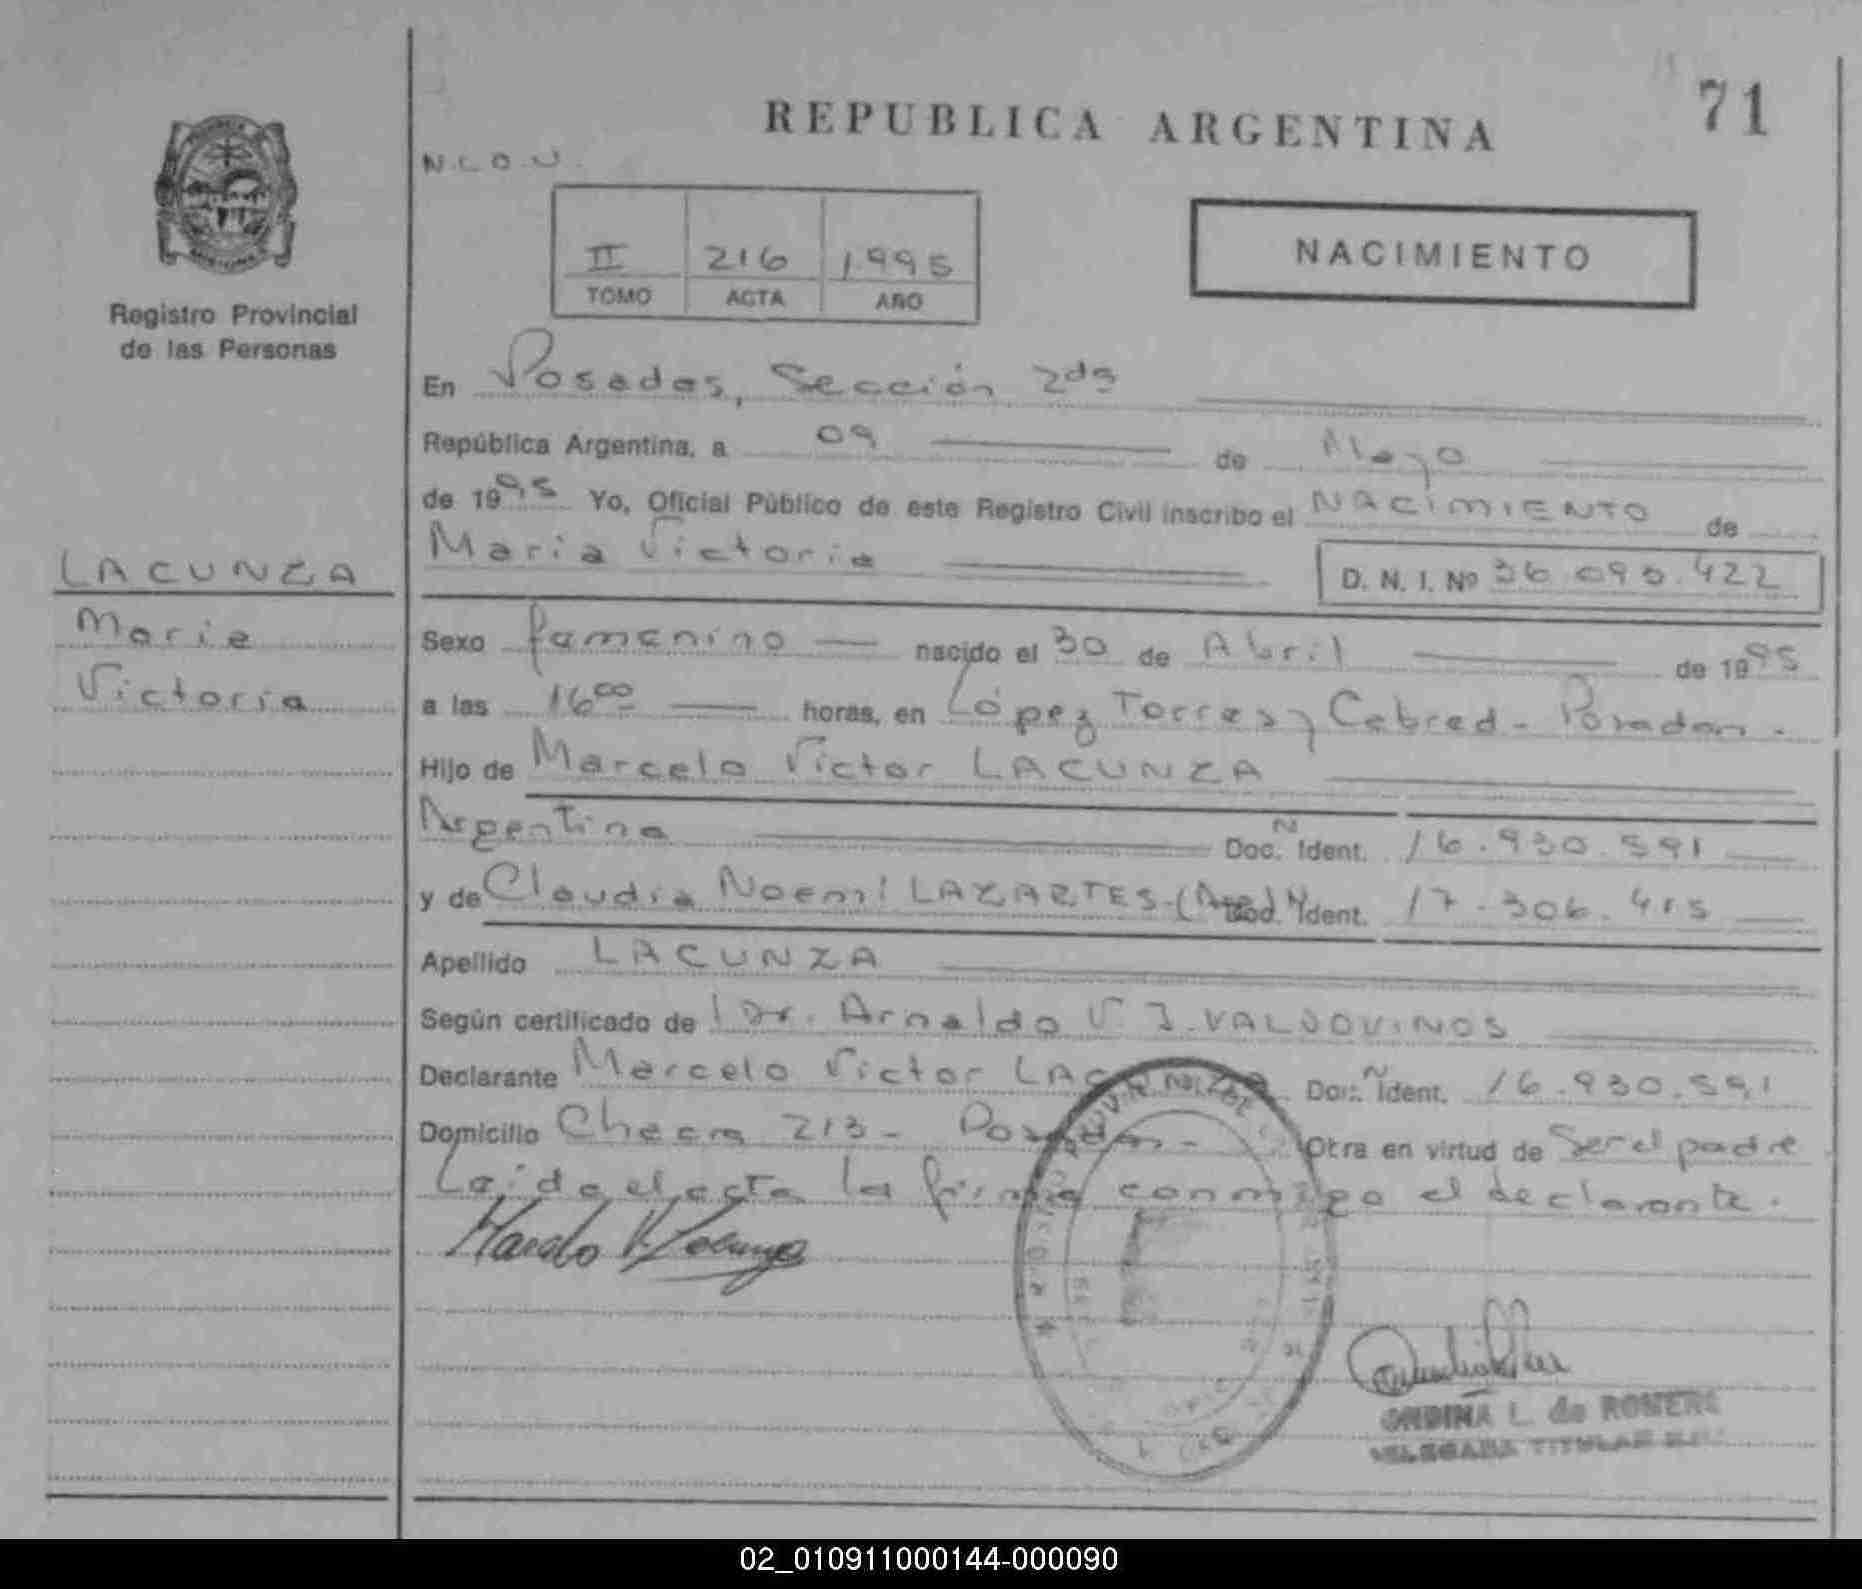 71
REPUBLICA ARGENTINA
N.L.O.U.
II 216 1.995
TOMO ACTA AÑO
NACIMIENTO
Registro Provincial
de las Personas
En Posadas, Sección 2da
República Argentina, a 09 de Mayo
de 1995 Yo, Oficial Público de este Registro Civil inscribo el NACIMIENTO de
Maria Victoria D. N. I. Nº 36.095.422
LACUNZA
Maria
Victoria
Sexo femenino nacido el 30 de Abril de 1995
a las 16 00 horas, en López Torres y Cabred - Posadas -
Hijo de Marcelo Victor LACUNZA
Argentina Doc. N Ident. 16.930.591
y de Claudia Noemi LAZARTES - (Arg) Doc. N Ident. 17.306.415
Apellido LACUNZA
Según certificado de Dr. Arnaldo V. J. VALDOVINOS
Declarante Marcelo Victor LACUNZA Doc. N Ident. 16.930.591
Domicilio Checra 213 - Posadas - Obra en virtud de Ser el padre
Leida el acta la firma conmigo el declarante.
Marcelo V. Lacunza
ORDINA L. de ROMERO
DELEGADA TITULAR
02_010911000144-000090